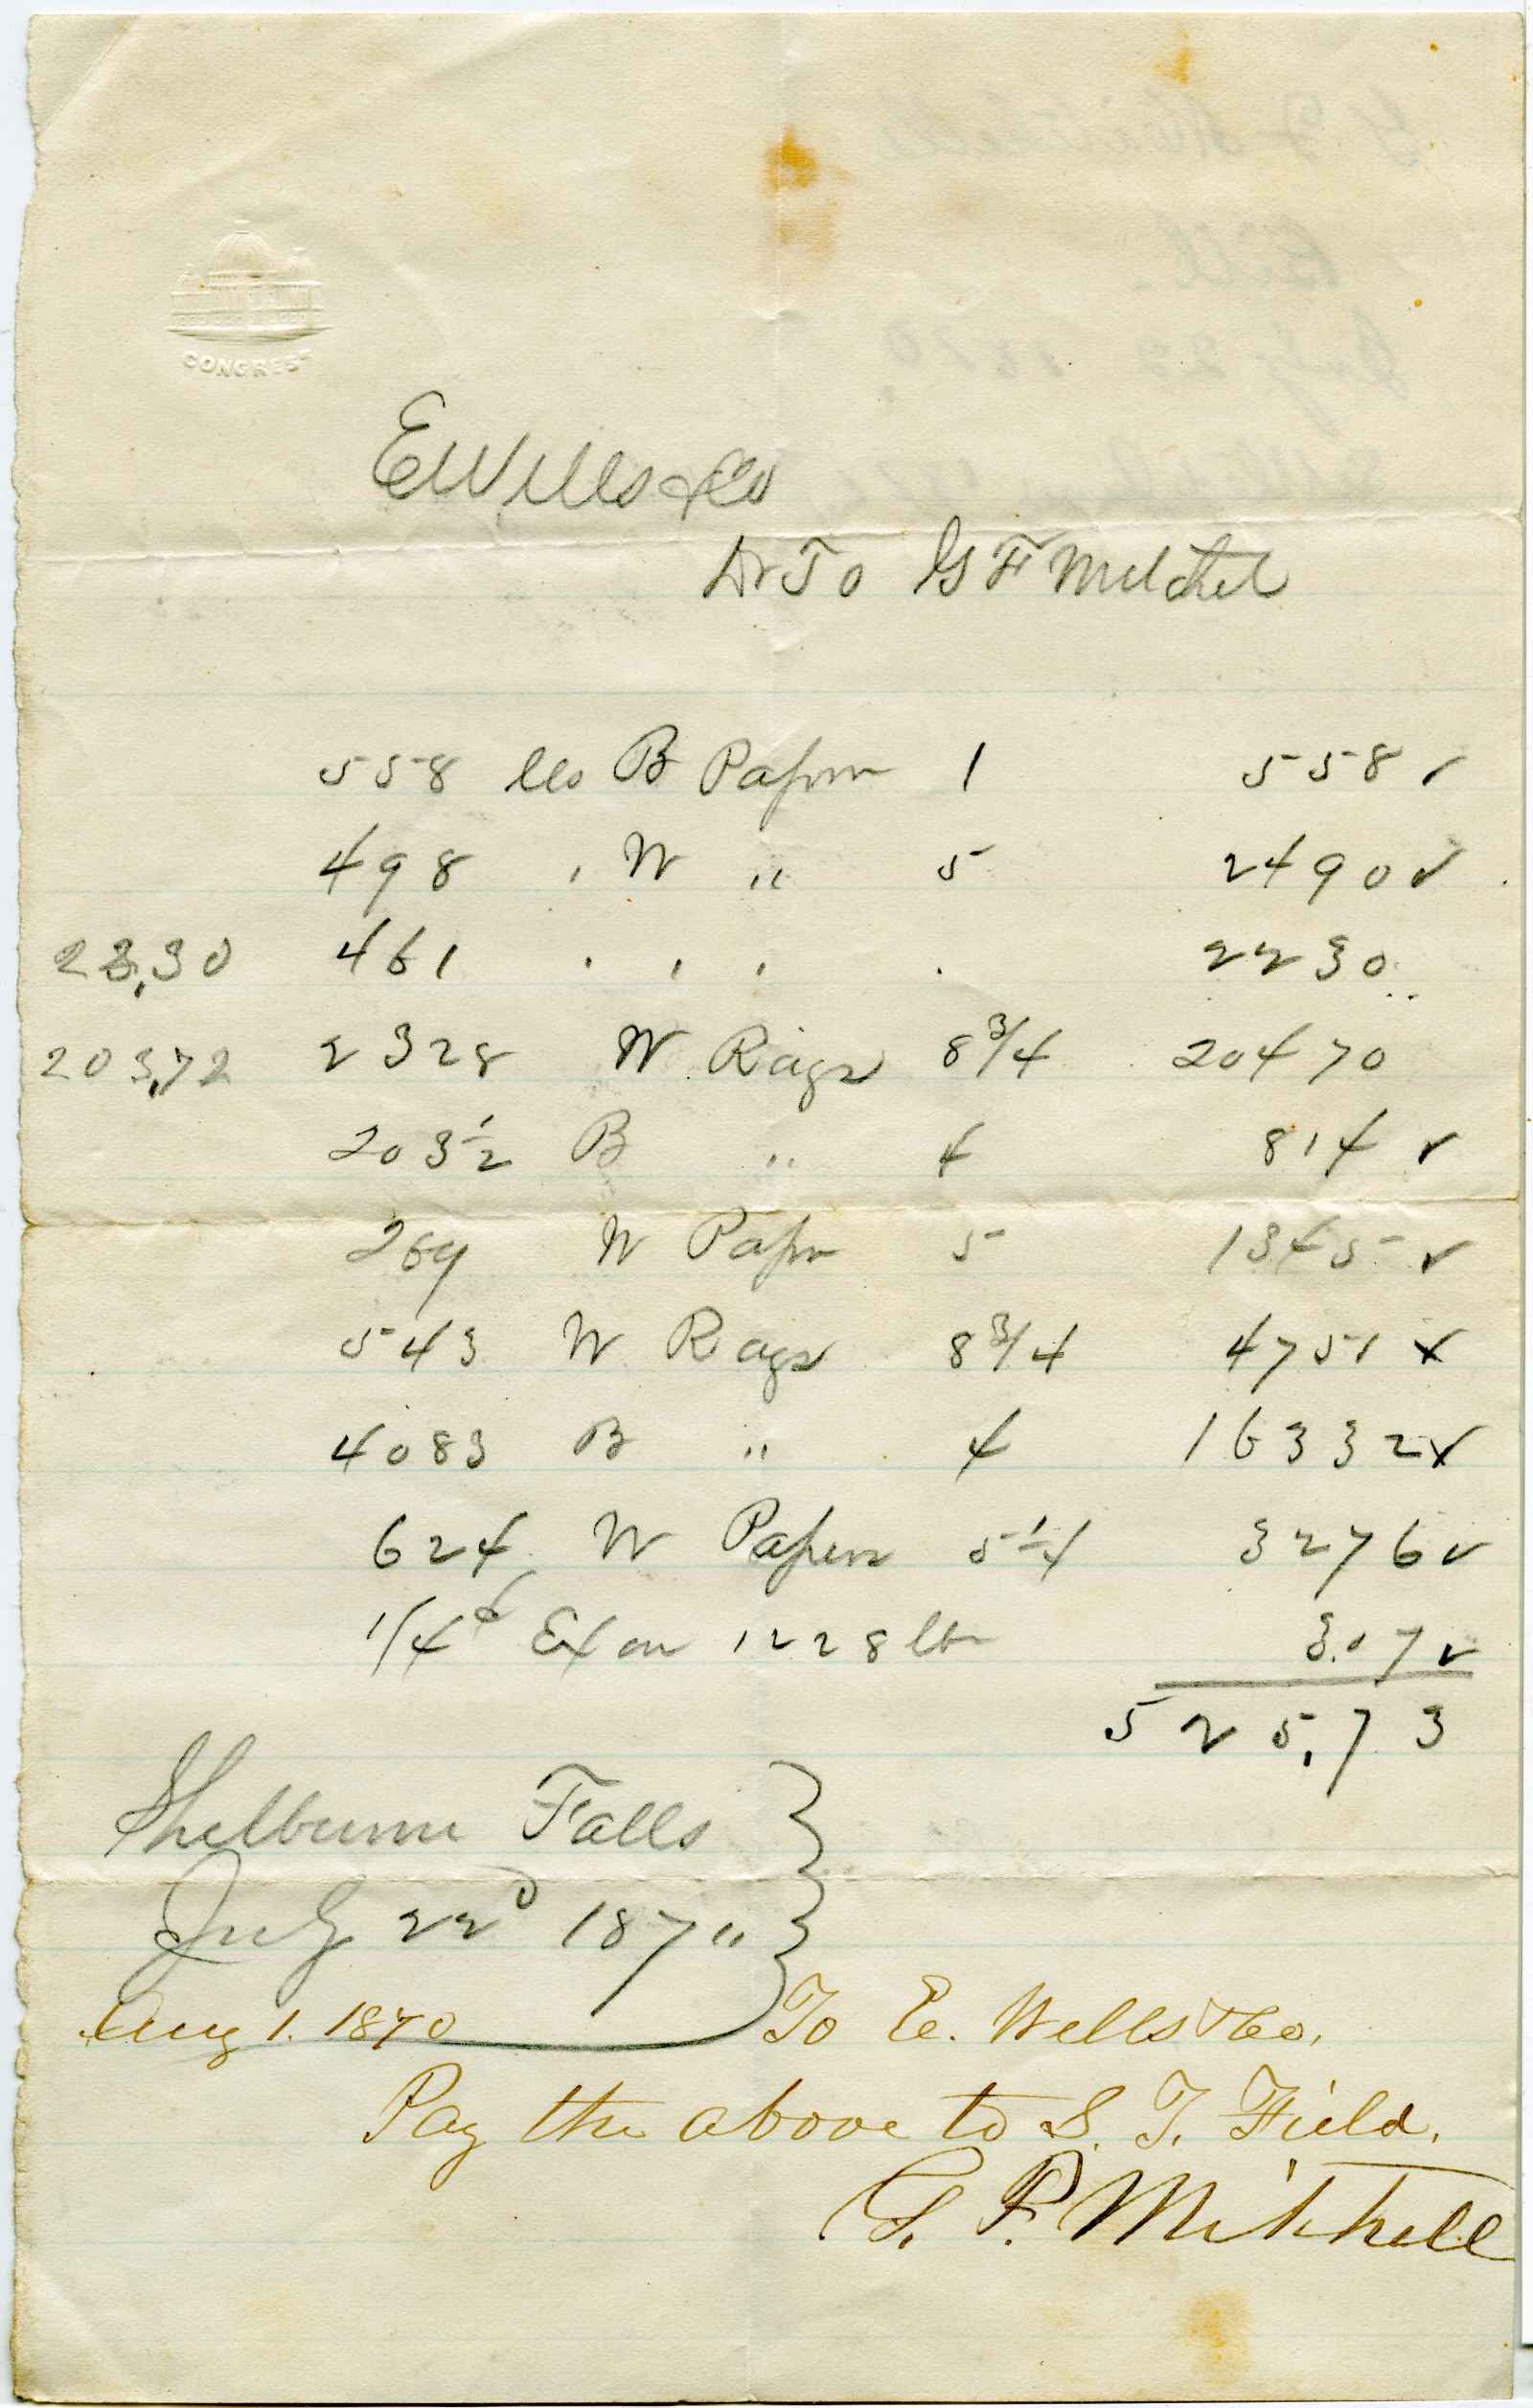 CONGRESS
E Wells & Co
Dr To G F Mitchel
558 lbs B Paper 1 558 ✓
498 " W " 5 2490 ✓
23,30 461 " " " " 2230
203,72 2328 W Rags 8 3/4 20470
203 1/2 B " 4 814 ✓
269 W Paper 5 1345 ✓
543 W Rags 8 3/4 4751 x
4083 B " 4 16332 x
624 W Paper 5 1/4 3276 ✓
1/4 ¢ Ex on 1228 lbs 3.07 ✓
525,73
Shelburne Falls
July 22d 187"
Aug 1. 1870 To E. Wells & Co,
Pay the above to S. T. Field.
G. F. Mitchell